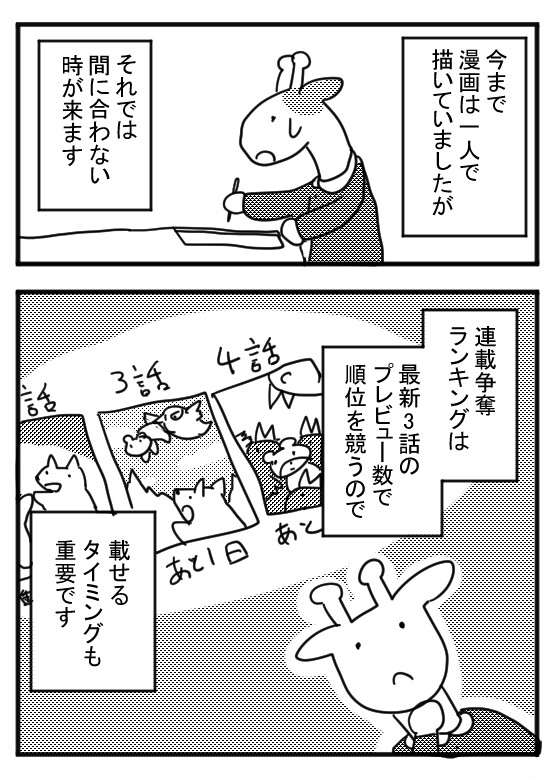 今まで
漫画は一人で
描いていましたが
それでは
間に合わない
時が来ます
連載争奪
ランキングは
最新3話の
プレビュー数で
順位を競うので
4話
3話
話
あと
あと1日
載せる
タイミングも
重要です